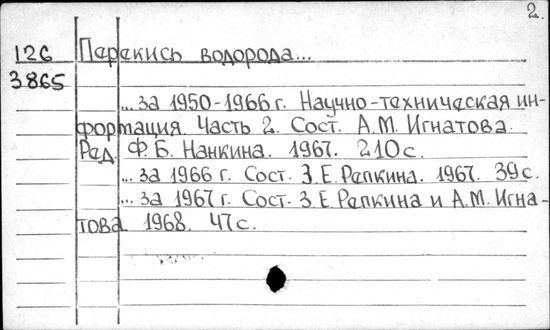 2.
126 Перекись водорода...
3865
... за 1950-1966 г. Научно-техническая ин-
формация. Часть 2. Сост. А.М. Игнатова.
Ред. Ф.Б. Нанкина. 1967. 210 с.
... за 1966 г. Сост. З.Е. Рапкина. 1967. 39 с.
... за 1967 г. Сост. З.Е. Рапкина и А.М. Игна-
това. 1968. 47 с.